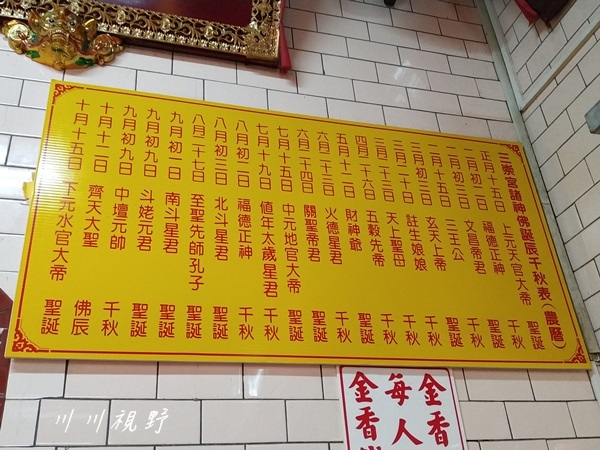 三崇宮諸神佛誕辰千秋表(農曆)
正月十五日 上元天官大帝 聖誕
二月初二日 福德正神 千秋
二月初三日 文昌帝君 聖誕
二月十五日 三王公 千秋
三月初三日 玄天上帝 聖誕
三月二十日 註生娘娘 千秋
三月二十三日 天上聖母 千秋
四月二十六日 五穀先帝 聖誕
財神爺 千秋
火德星君 聖誕
六月二十四日 關聖帝君 聖誕
七月十五日 中元地官大帝 聖誕
七月十九日 值年太歲星君 千秋
八月初二日 福德正神 千秋
八月初三日 北斗星君 聖誕
八月二十七日 至聖先師孔子 聖誕
九月初一日 南斗星君 聖誕
九月初九日 斗姥元君 聖誕
九月初九日 中壇元帥 千秋
十月十二日 齊天大聖 佛辰
十月十五日 下元水官大帝 聖誕
金香
每人
金香
川川視野